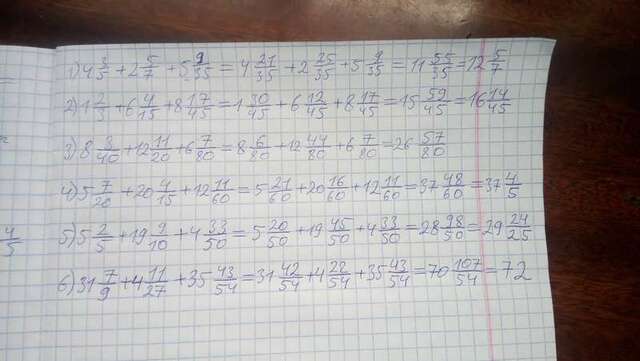 4/5
1) 4 3/5 + 2 5/7 + 5 9/35 = 4 21/35 + 2 25/35 + 5 9/35 = 11 55/35 = 12 5/7
2) 1 2/3 + 6 4/15 + 8 17/45 = 1 30/45 + 6 12/45 + 8 17/45 = 15 59/45 = 16 14/45
3) 8 3/40 + 12 11/20 + 6 7/80 = 8 6/80 + 12 44/80 + 6 7/80 = 26 57/80
4) 5 7/20 + 20 4/15 + 12 11/60 = 5 21/60 + 20 16/60 + 12 11/60 = 37 48/60 = 37 4/5
5) 5 2/5 + 19 9/10 + 4 33/50 = 5 20/50 + 19 45/50 + 4 33/50 = 28 98/50 = 29 24/25
6) 31 7/9 + 4 11/27 + 35 43/54 = 31 42/54 + 4 22/54 + 35 43/54 = 70 107/54 = 72